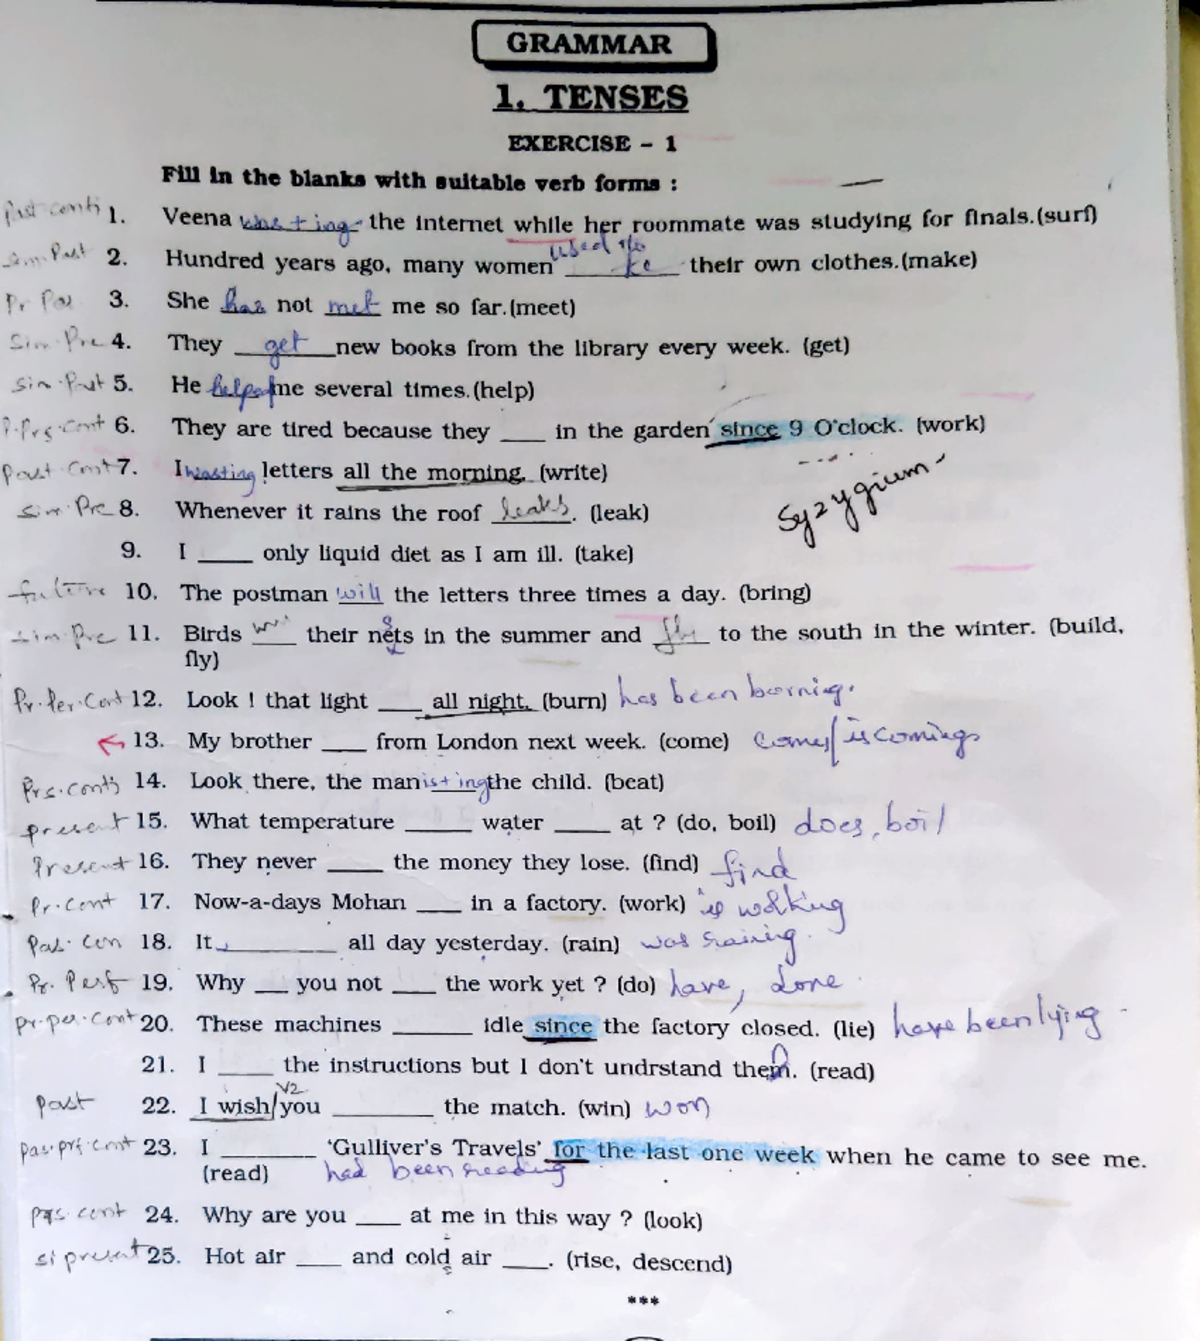 GRAMMAR
1. TENSES
EXERCISE - 1
Fill in the blanks with suitable verb forms :
Past conti 1. Veena was + ing the internet while her roommate was studying for finals.(surf)
Sim Past 2. Hundred years ago, many women used to ___ their own clothes.(make)
Pr Per 3. She has not met me so far.(meet)
Sim. Pre 4. They get new books from the library every week. (get)
Sim. Past 5. He helped me several times.(help)
P. Prs. Cont 6. They are tired because they ___ in the garden since 9 O'clock. (work)
Past Cont 7. I letters all the morning. (write)
Sim. Pre 8. Whenever it rains the roof leaks. (leak)
Syzygium
9. I ___ only liquid diet as I am ill. (take)
future 10. The postman will the letters three times a day. (bring)
Sim. Pre 11. Birds ___ their nets in the summer and fly to the south in the winter. (build,
fly)
Pr. Per. Cont 12. Look ! that light ___ all night. (burn) has been borning.
13. My brother ___ from London next week. (come) comes/is comings
Prs. conti 14. Look there, the man is + ing the child. (beat)
present 15. What temperature ___ water ___ at ? (do, boil) does, boil
Present 16. They never ___ the money they lose. (find) find
Pr. Cont 17. Now-a-days Mohan ___ in a factory. (work) is working
Pas. Con 18. It ___ all day yesterday. (rain) was raining.
Pr. Perf 19. Why ___ you not ___ the work yet ? (do) have, done
Pr. per. cont 20. These machines ___ idle since the factory closed. (lie) have been lying
21. I ___ the instructions but I don't undrstand them. (read)
V2
Past 22. I wish/you ___ the match. (win) won
Pas. prf. cont 23. I ___ 'Gulliver's Travels' for the last one week when he came to see me.
(read) had been reading
prs. cont 24. Why are you ___ at me in this way ? (look)
si present 25. Hot air ___ and cold air ___. (rise, descend)
***